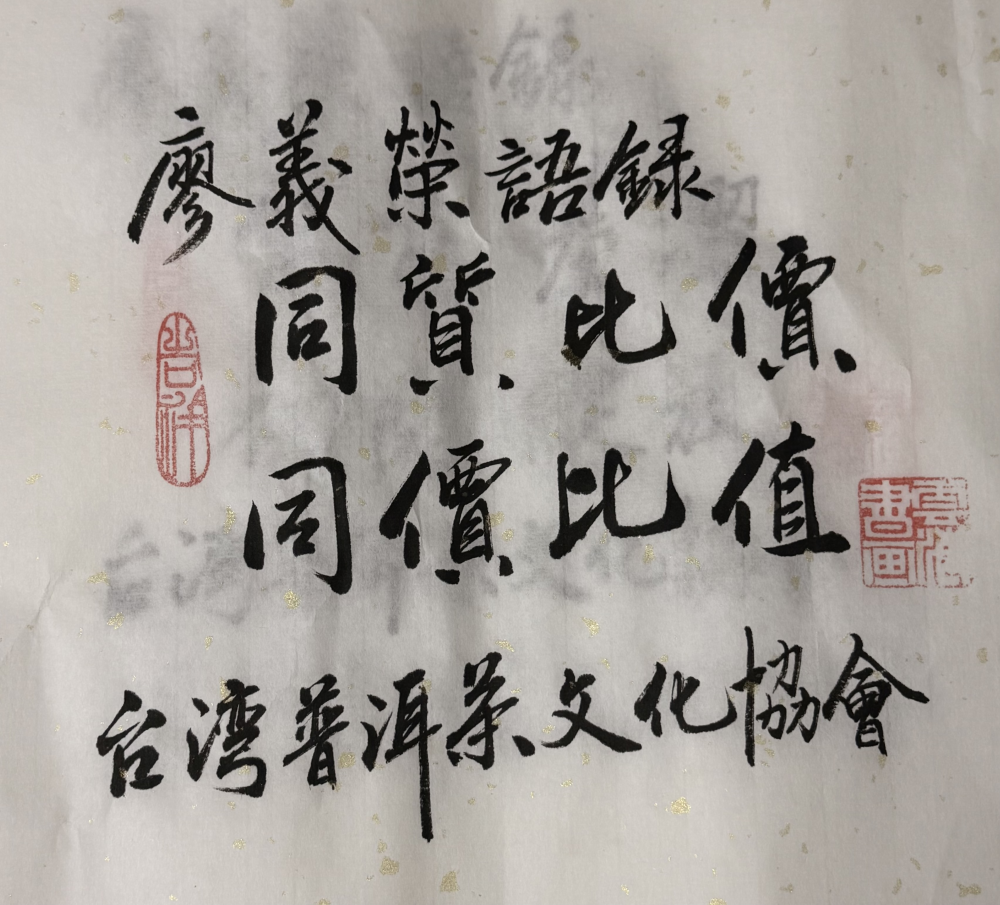 廖義榮語録
同質比價
同價比值
台湾普洱茶文化協會